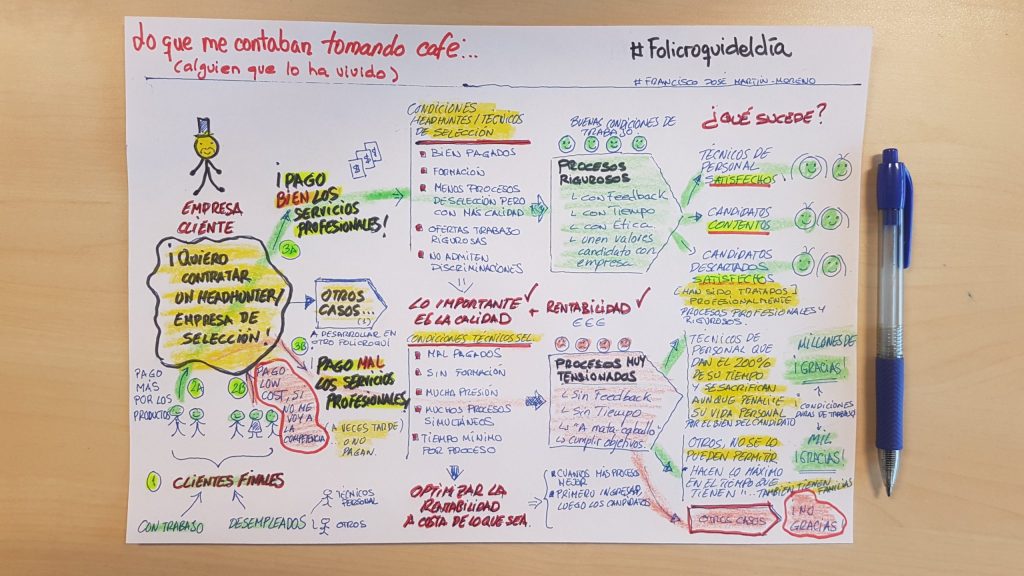 Lo que me contaban tomando café...
(alguien que lo ha vivido)
#Folicroquideldía
#FRANCISCO JOSÉ MARTÍN-MORENO
EMPRESA
CLIENTE
¡QUIERO
CONTRATAR
UN HEADHUNTER/
EMPRESA DE
SELECCIÓN!
3A
¡PAGO
BIEN LOS
SERVICIOS
PROFESIONALES!
OTROS
CASOS...
(1)
A DESARROLLAR EN
OTRO FOLICROQUI
3B
¡PAGO MAL
LOS SERVICIOS
PROFESIONALES!
(A VECES TARDE)
O NO
PAGAN.
PAGO
MÁS
POR LOS
PRODUCTOS
2A
2B
PAGO
LOW
COST, SI
NO ME
VOY A LA
COMPETENCIA
1
CLIENTES FINALES
CON TRABAJO
DESEMPLEADOS
TÉCNICOS
PERSONAL
OTROS
CONDICIONES
HEADHUNTERS/TÉCNICOS
DE SELECCIÓN
BIEN PAGADOS
FORMACIÓN
MENOS PROCESOS
DE SELECCIÓN PERO
CON MÁS CALIDAD
OFERTAS TRABAJO
RIGUROSAS
NO ADMITEN
DISCRIMINACIONES
LO IMPORTANTE
ES LA CALIDAD
+ RENTABILIDAD
€€€
CONDICIONES TÉCNICOS SEL.
MAL PAGADOS
SIN FORMACIÓN
MUCHA PRESIÓN
MUCHOS PROCESOS
SIMULTÁNEOS
TIEMPO MÍNIMO
POR PROCESO
OPTIMIZAR LA
RENTABILIDAD
A COSTA DE LO QUE SEA.
CUANTOS MÁS PROCESOS
MEJOR
PRIMERO INGRESAR,
LUEGO LOS CANDIDATOS
BUENAS CONDICIONES DE
TRABAJO
PROCESOS
RIGUROSOS
con Feedback
con Tiempo
con Ética
unen valores
candidato con
empresa
PROCESOS MUY
TENSIONADOS
Sin Feedback
Sin Tiempo
"A mata-caballo"
cumplir objetivos
¿QUÉ SUCEDE?
TÉCNICOS DE
PERSONAL
SATISFECHOS
CANDIDATOS
CONTENTOS
CANDIDATOS
DESCARTADOS
SATISFECHOS
(HAN SIDO TRATADOS)
PROFESIONALMENTE
PROCESOS PROFESIONALES Y
RIGUROSOS.
TÉCNICOS DE
PERSONAL QUE
DAN EL 200%
DE SU TIEMPO
Y SE SACRIFICAN
AUNQUE PENALICE
SU VIDA PERSONAL
POR EL BIEN DEL CANDIDATO
MILLONES DE
¡GRACIAS!
¡CONDICIONES
DURAS DE TRABAJO!
MIL
¡GRACIAS!
OTROS, NO SE LO
PUEDEN PERMITIR
HACEN LO MÁXIMO
EN EL TIEMPO QUE
TIENEN
TAMBIÉN TIENEN FAMILIAS
OTROS CASOS
¡NO
GRACIAS!